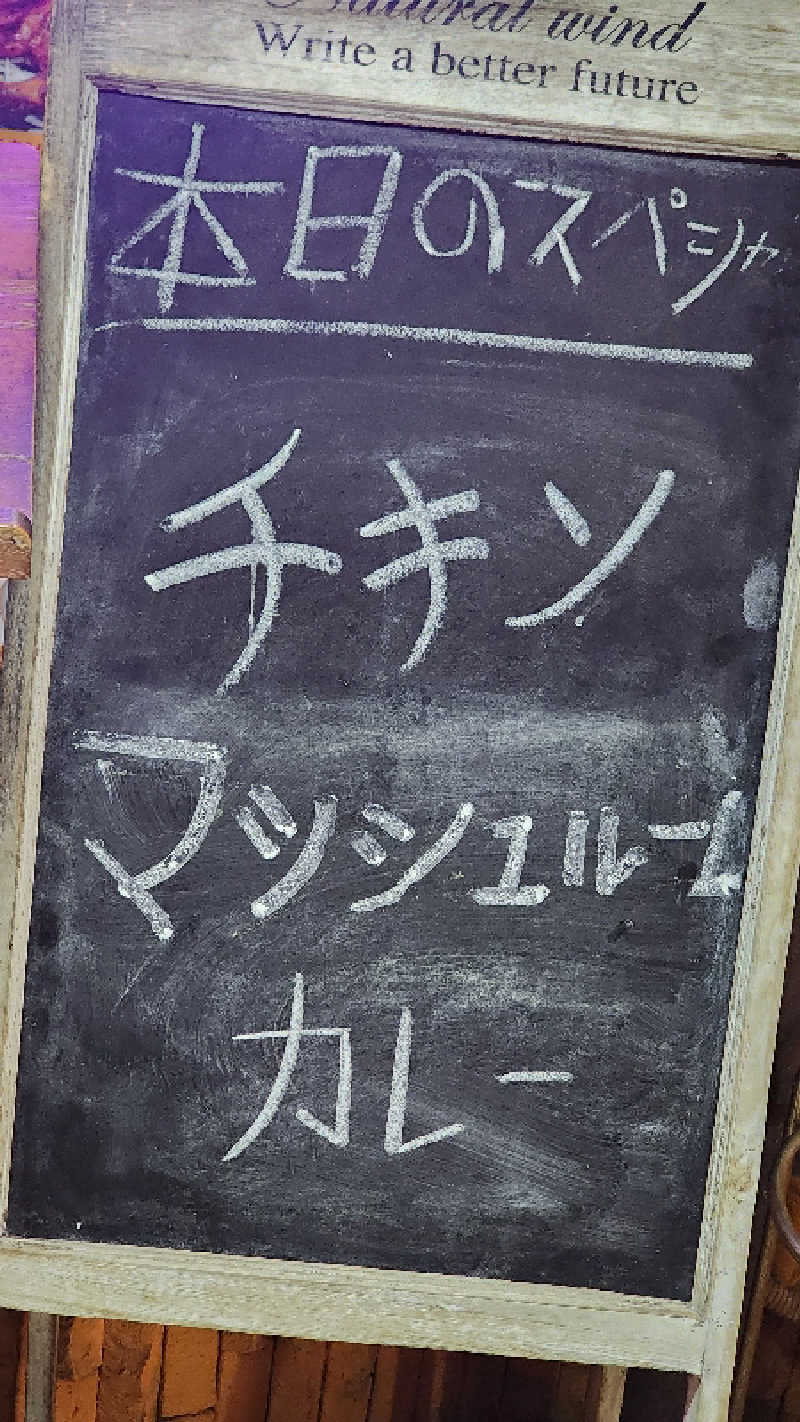 Natural wind
Write a better future
本日のスペシャ
チキン
マッシュルーム
カレー